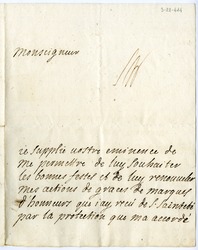 Monseigneur
Je supplie vostre eminence de
me promettre de luy souhaiter
les bonnes festes et de luy renouveler
mes actions de graces de marques
d'honneurs que j'ay reçu de S. Sainteté
par la protection que m'a accordé